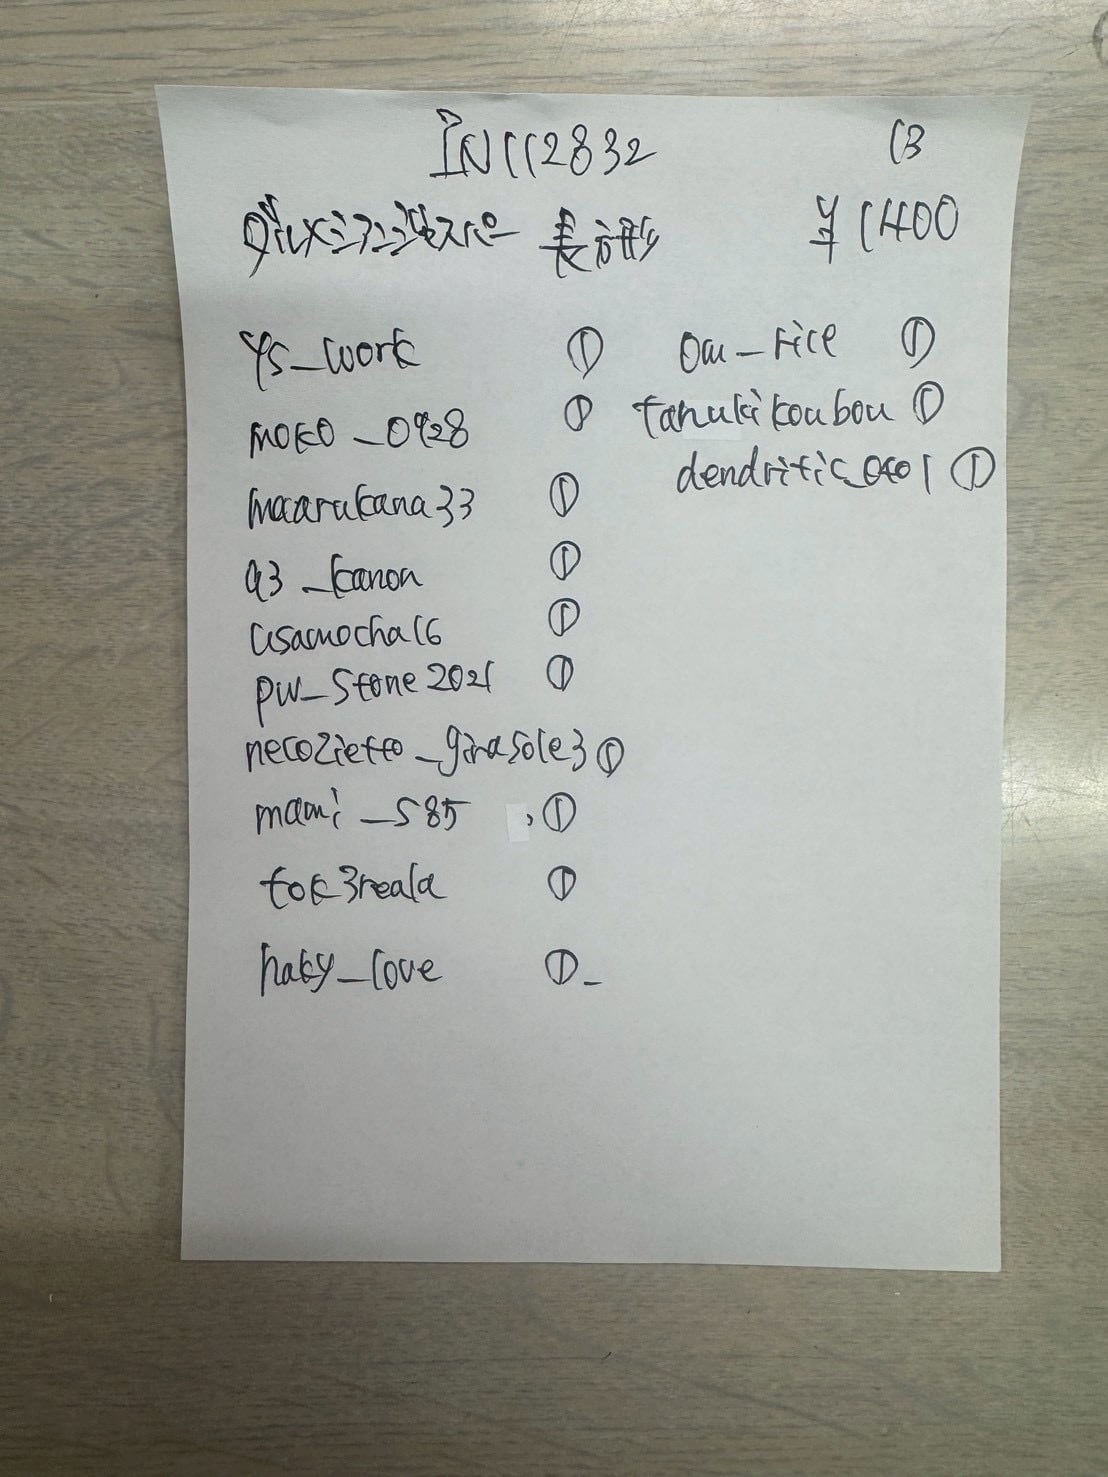 IN112832 13
ダルメシアンジャスパー 長方形 ¥1400
ys_work ①
moko_0928 ①
maarukana33 ①
a3_kanon ①
usamocha16 ①
pw_stone2021 ①
necozietto_girasole3 ①
mami_s85 ①
tok3reala ①
haky_love ①
ou_rice ①
tanukikoubou ①
dendritic_0401 ①